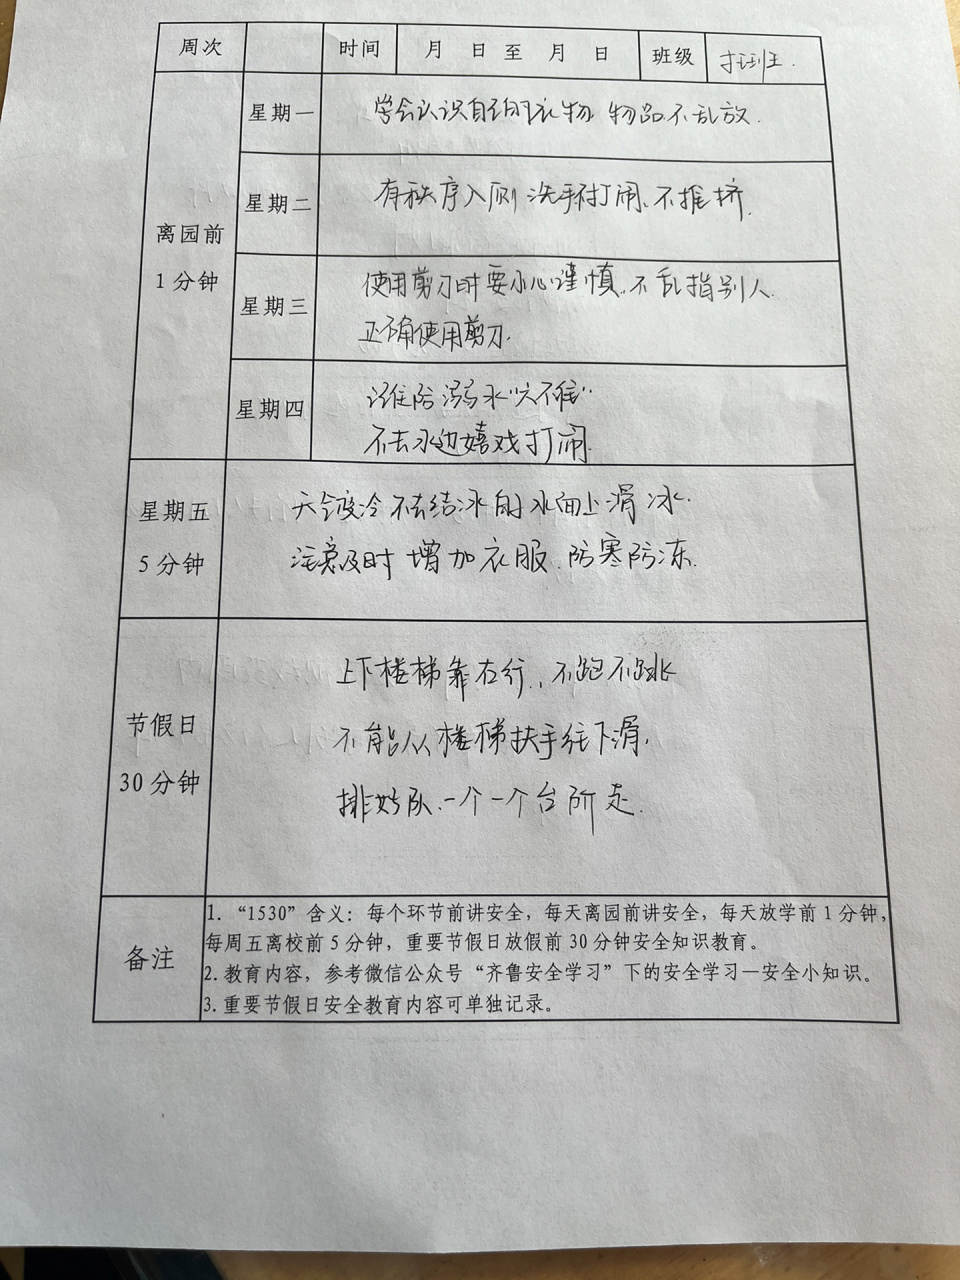 周次 时间 月 日 至 月 日 班级 托班
离园前
1分钟
星期一 学会认识自己的衣物 物品不乱放.
星期二 有秩序入厕 洗手不打闹、不推挤.
星期三 使用剪刀时要小心谨慎.不乱指别人.
正确使用剪刀.
星期四 谨住防溺水“六不准”
不去水边嬉戏打闹.
星期五
5分钟
天气寒冷不去结冰的冰面上滑冰.
注意及时增加衣服.防寒防冻.
节假日
30分钟
上下楼梯靠右行,不跑不跳
不能从楼梯扶手往下滑.
排好队.一个一个台阶走.
备注
1. “1530”含义：每个环节前讲安全，每天离园前讲安全，每天放学前1分钟，
每周五离校前5分钟，重要节假日放假前30分钟安全知识教育。
2. 教育内容，参考微信公众号“齐鲁安全学习”下的安全学习—安全小知识。
3. 重要节假日安全教育内容可单独记录。